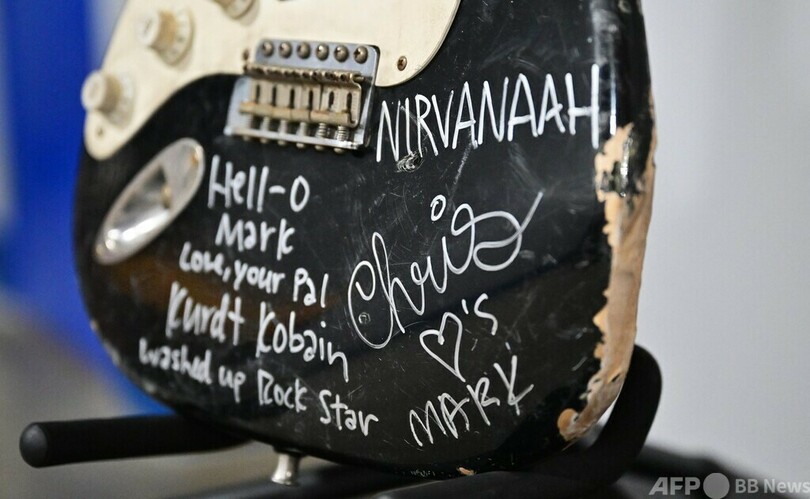 NIRVANAAH
Hell-O
Mark
Love, your Pal
Kurdt Kobain
Washed up Rock Star
Chris
♡'s
MARK
AFP BB News